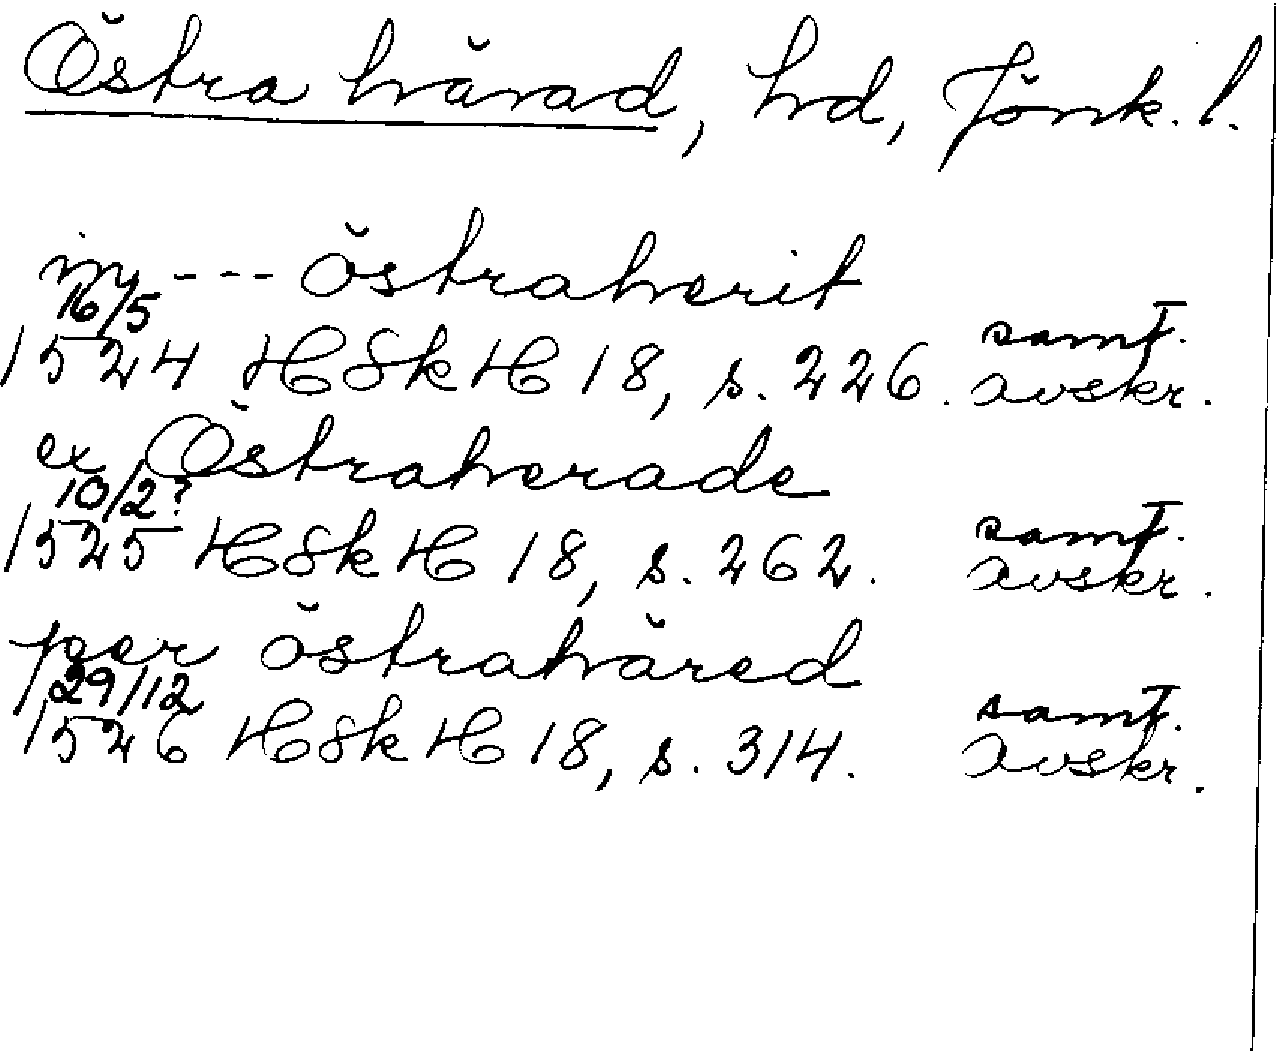 Östra härad, hd, Jönk. l.
in --- östraherit
16/5
1524 HSkH 18, s. 226. samt. avskr.
ex Östraherade
10/2?
1525 HSkH 18, s. 262. samt. avskr.
per östrahäred
29/12
1526 HSkH 18, s. 314. samt. avskr.